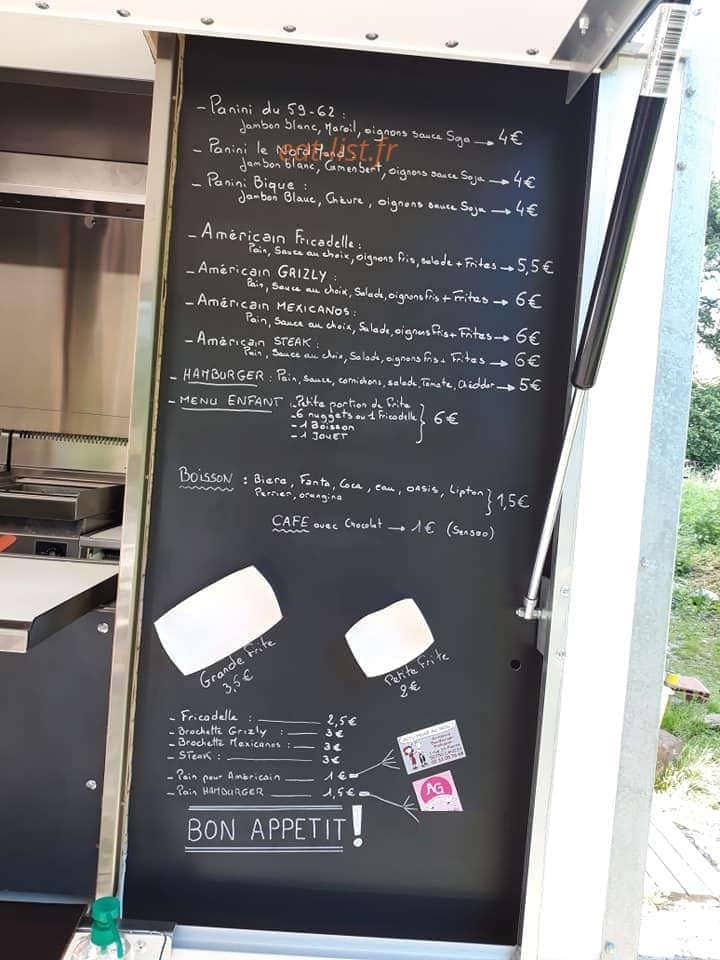 - Panini du 59-62 :
Jambon blanc, Maroil, oignons sauce Soja → 4€
- Panini le Nordmand
eat-list.fr
Jambon blanc, Camenbert, oignons sauce Soja → 4€
- Panini Bique :
Jambon Blanc, Chèvre, oignons sauce Soja → 4€
- Américain Fricadelle :
Pain, Sauce au choix, oignons fris, salade + Frites → 5,5€
- Américain GRIZLY :
Pain, Sauce au choix, Salade, oignons fris + Frites → 6€
- Américain MEXICANOS :
Pain, Sauce au choix, Salade, oignons fris + Frites → 6€
- Américain STEAK :
Pain, Sauce au choix, Salade, oignons fris + Frites → 6€
- HAMBURGER : Pain, sauce, cornichons, salade, Tomate, Cheddar → 5€
- MENU ENFANT : - Petite portion de frite
- 6 nuggets ou 1 Fricadelle } 6€
- 1 Boisson
- 1 JOUET
BOISSON : Biere, Fanta, Coca, eau, OASIS, Lipton
Perrier, orangina } 1,5€
CAFE avec Chocolat → 1€ (Senseo)
Grande Frite
3,5€
Petite Frite
2€
- Fricadelle : 2,5€
- Brochette Grizly : 3€
- Brochette Mexicanos : 3€
- STEAK : 3€
- Pain pour Américain 1€
- Pain HAMBURGER 1,5€
AG
BON APPETIT !